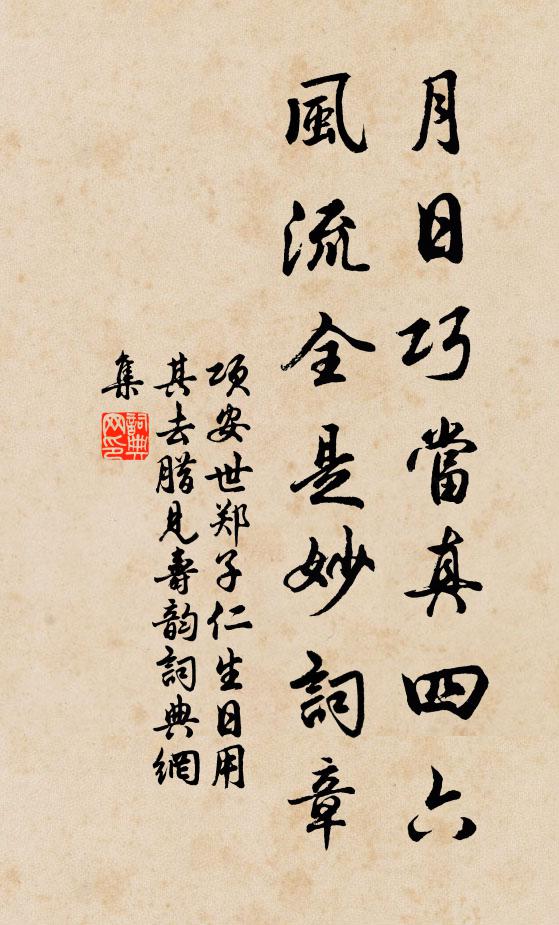 月日巧當真四六
風流全是妙詞章
项安世郑子仁生日用
其去腊見壽韵詞典網
集
詞典网印